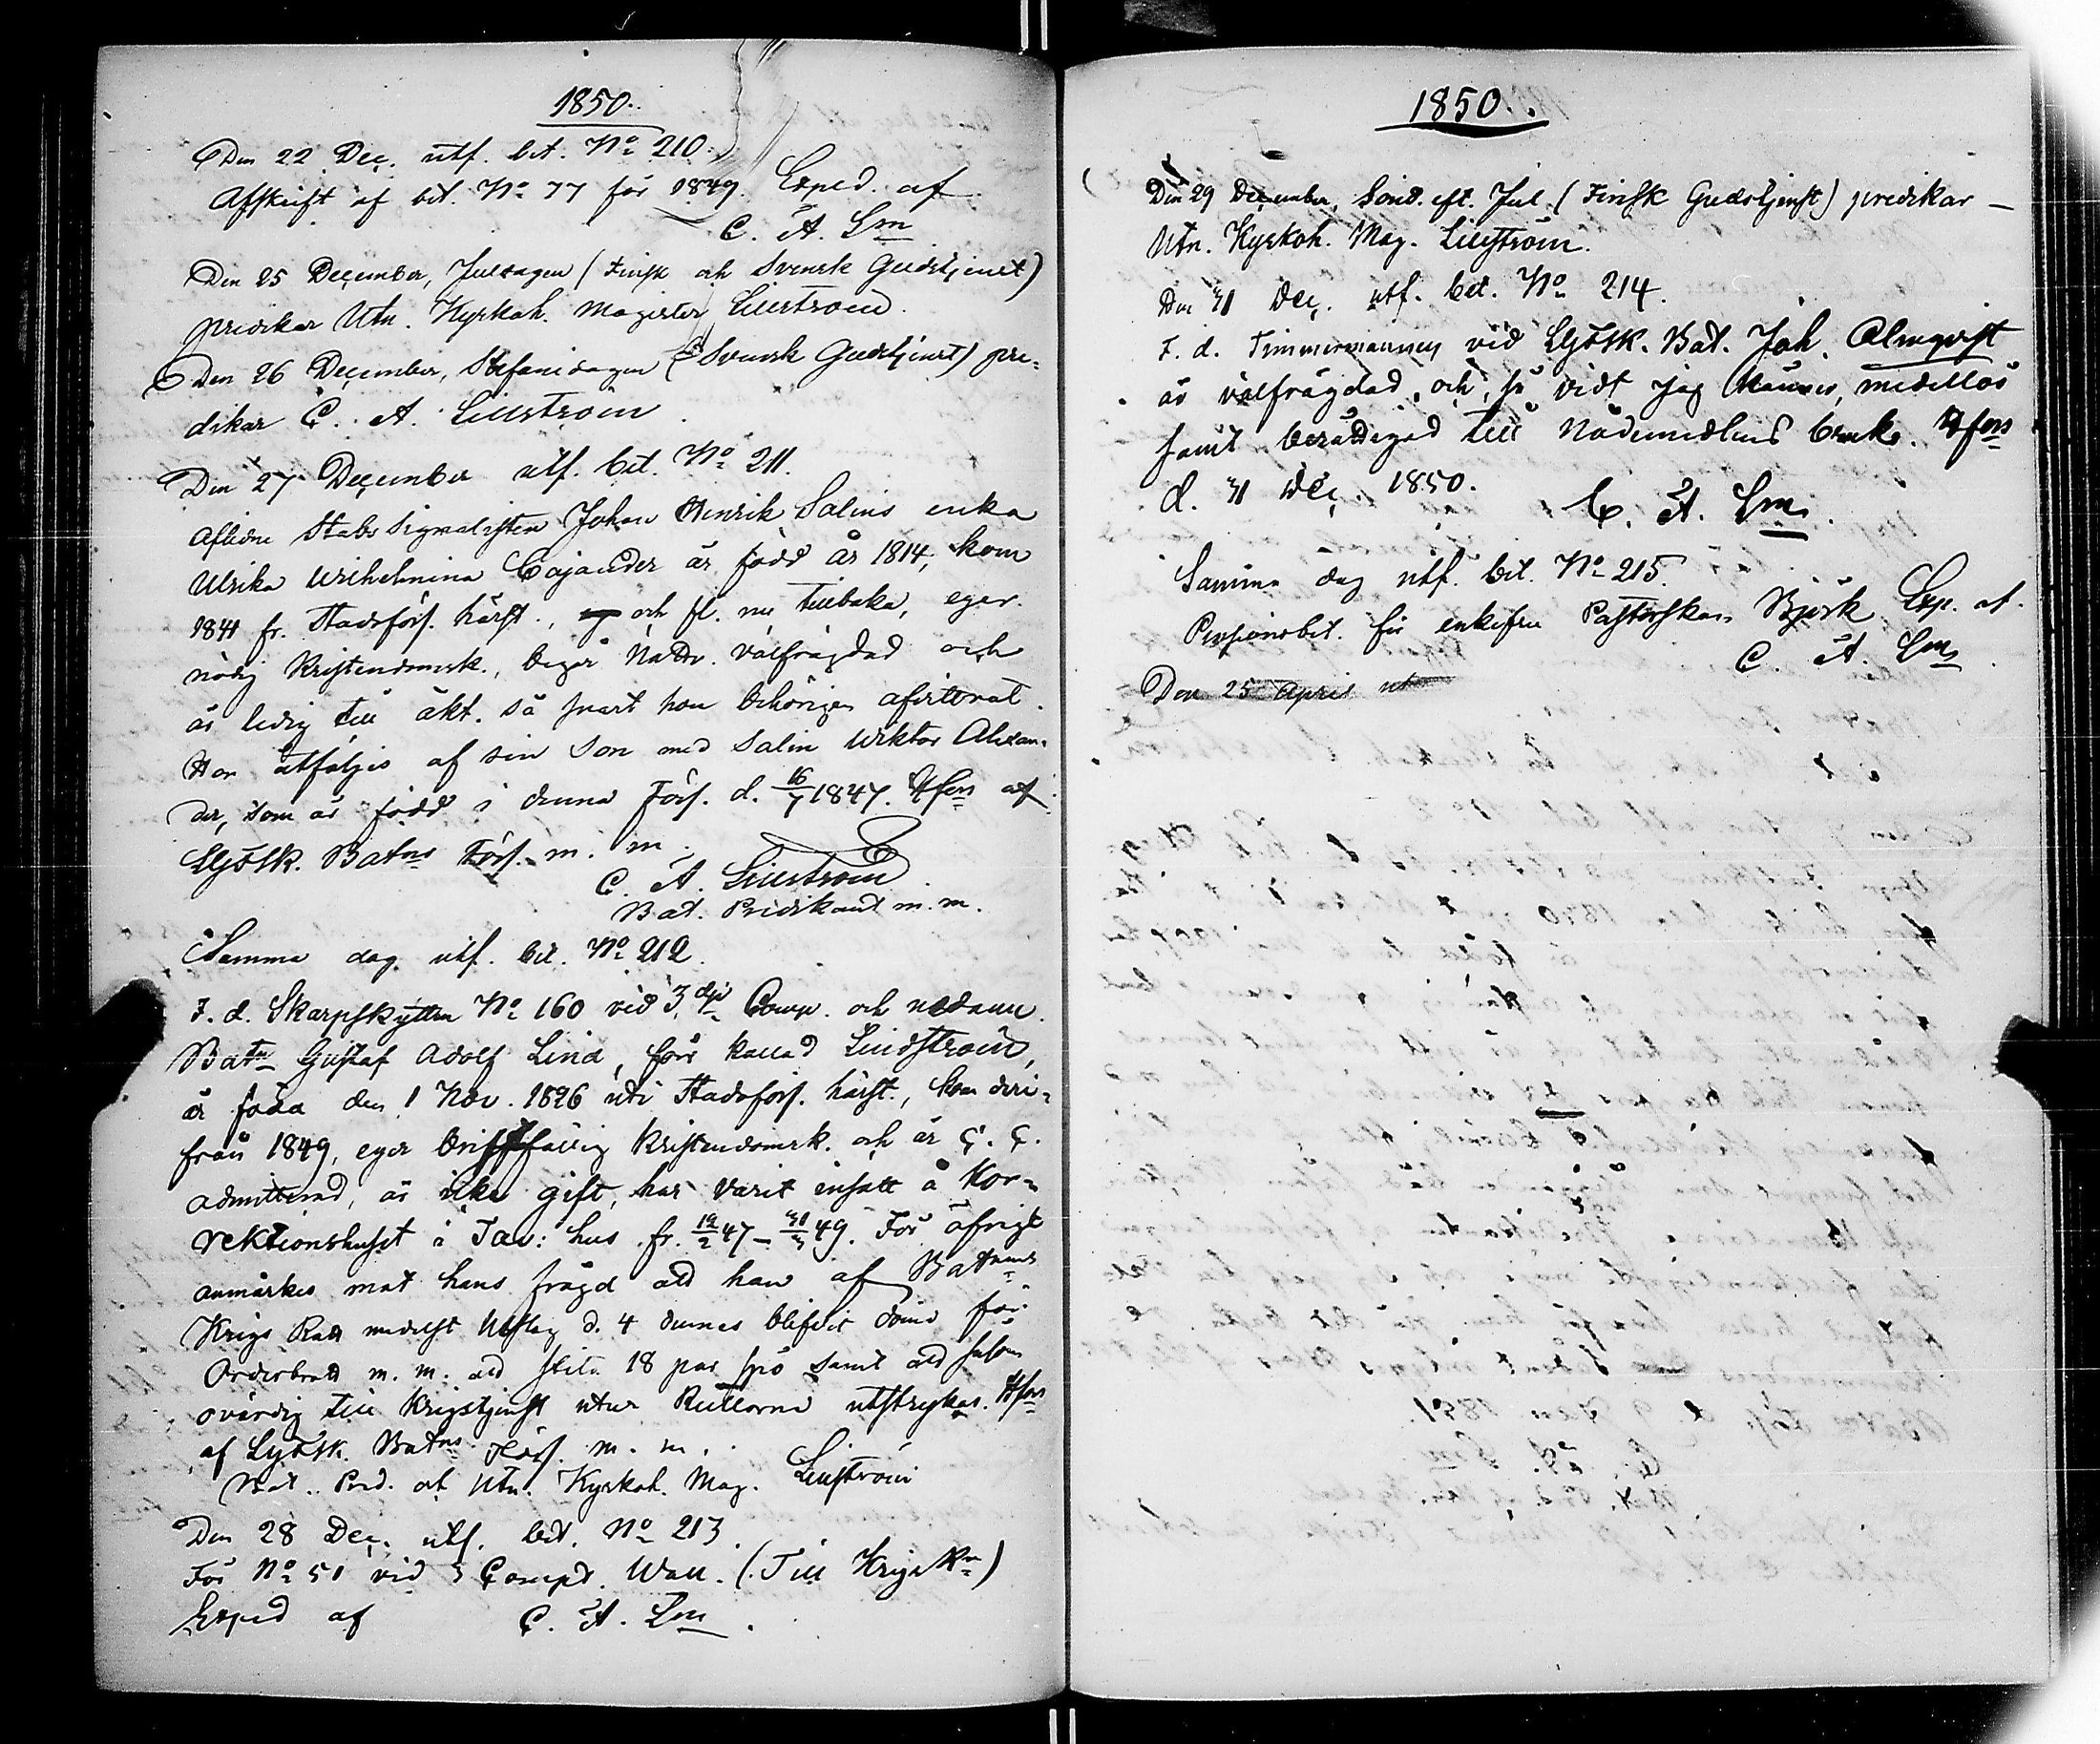 1850.
Den 22 Dec. utf. bet. No 210.
Afskrift af bet. No 77 för 1849. Exped. af
C. A. Lm
Den 25 December, Juldagen (Finsk och Svensk Gudstjenst)
predikar Utn. Kyrkoh. Magister Lillström.
Den 26 December, Stefanidagen (Svensk Gudstjenst) pre-
dikar C. A. Lillström
Den 27 December utf. bet. No 211.
Aflidne Stabs Signalisten Johan Henrik Salins enka
Ulrika Wilhelmina Cajander är född år 1814, kom
1841 fr. Stadsförs. härst., och fl. nu tillbaka, eger
nödig kristendomsk., begår Nattv. välfrägdad och
är ledig till äkt. så snart hon behörigen afvittrat.
Hon åtföljes af sin Son med Salin Viktor Alexan-
der, som är född i denna Förs. d. 16/7 1847. Hfors af
Sjösk. Batns Förs. m. m.
C. A. Lillström
Bat. Predikant m. m.
Samma dag utf. bet. No 212.
F. d. Skarpskytten No 160 vid 3dje Comp. och nedann.
Batn Gustaf Adolf Lind, förr kallad Lindström,
är född den 1 Nov. 1826 uti Stadsförs. härst., kom deri-
från 1849, eger bristfällig kristendomsk. och är
admitterad, är icke gift, har varit insatt å Kor-
rektionshuset i Tav: hus fr. 12/2 47 - 31/3 49. För öfrigt
anmärkes mot hans frägd att han af Batnens
Krigs Rätt medelst Utslag d. 4 dennes blifvit dömd för
Orderbrott m. m. att slita 18 par spö samt att såsom
ovärdig till Krigstjenst utur Rullorna utstrykas. Hfors
af Sjösk. Batns Förs. m. m.
Bat. Pred. och Utn. Kyrkoh. Mag. Lillström
Den 28 Dec. utf. bet. No 213.
För No 51 vid 3 Comp. Wall. (Till Krigs Rn)
Exped af C. A. Lm.
1850.
Den 29 December, Sönd. eft. Jul. (Finsk Gudstjenst) predikar
Utn. Kyrkoh. Mag. Lillström.
Den 31 Dec. utf. bet. No 214.
F. d. Timmermannen vid Sjösk. Bat. Joh. Almqvist
är välfrägdad, och, så vidt jag känner, medellös
samt berättigad till Nådemedlens bruk. Hfors
d. 31 Dec 1850.
C. A. Lm.
Samma dag utf. bet. No 215.
Pensionsbet. för enkefru Pastorskan Björk Exp. af
C. A. Lm.
Den 25 April ut